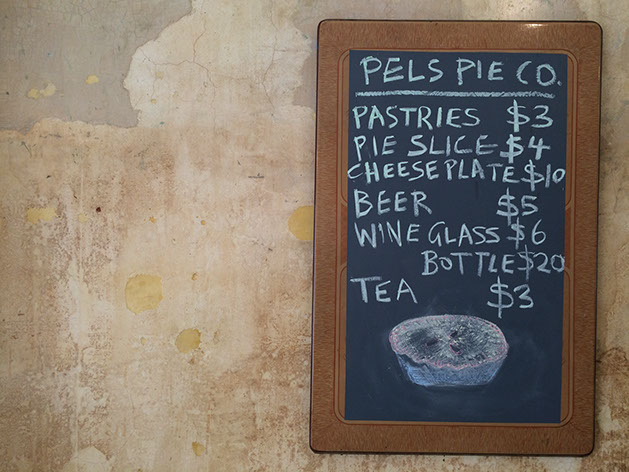 PELS PIE CO.
PASTRIES $3
PIE SLICE $4
CHEESEPLATE $10
BEER $5
WINE GLASS $6
BOTTLE $20
TEA $3